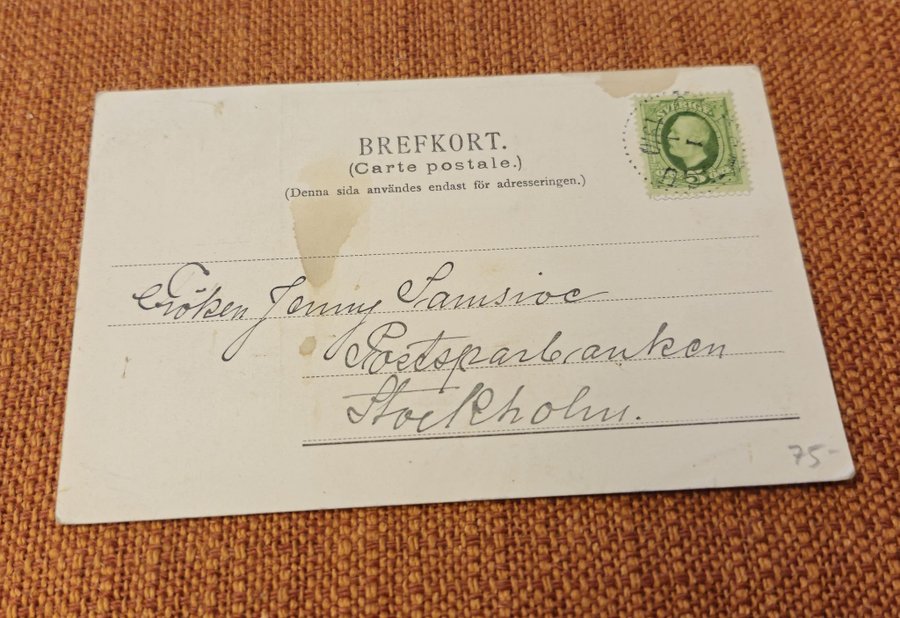 BREFKORT.
(Carte postale.)
(Denna sida användes endast för adresseringen.)
SVERIGE
5
Fröken Jenny Samsioe
Postsparbanken
Stockholm.
75-